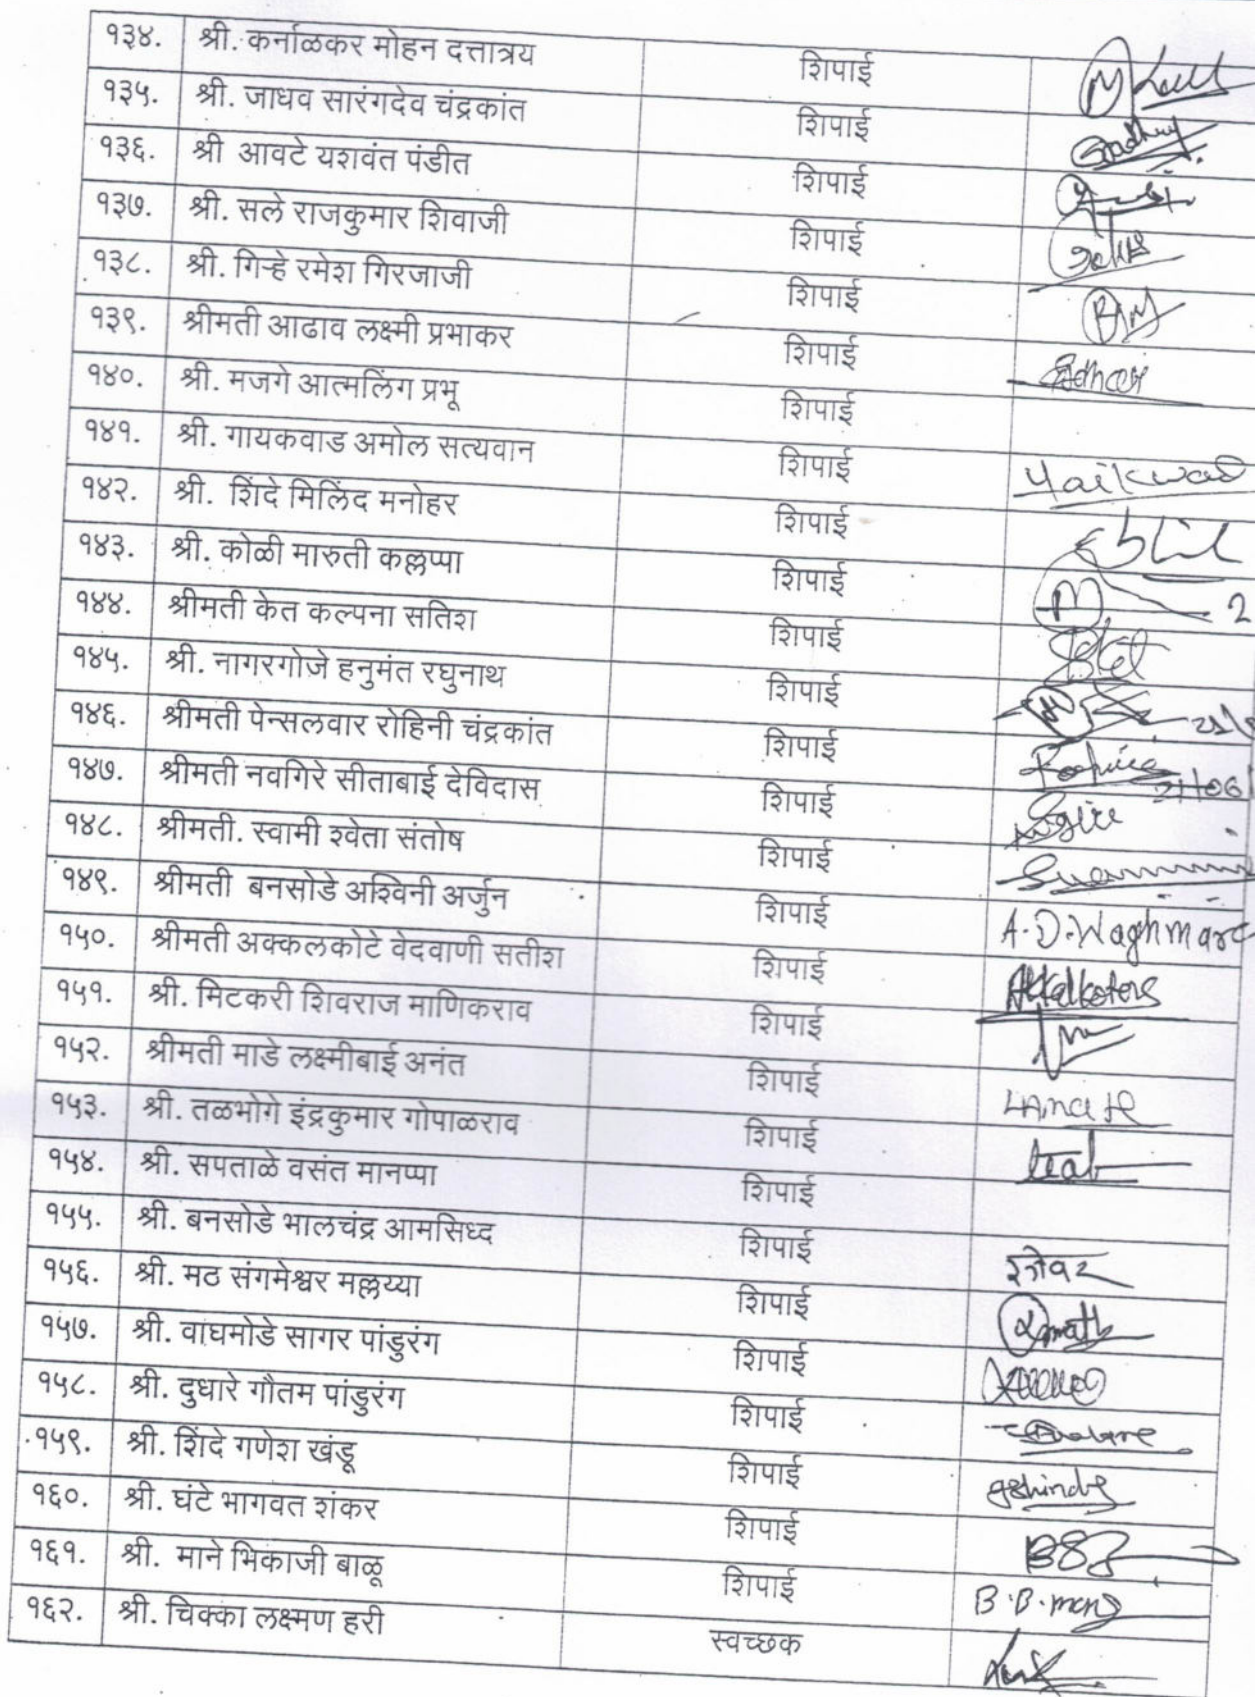 १३४. श्री. कर्नाळकर मोहन दत्तात्रय शिपाई
१३५. श्री. जाधव सारंगदेव चंद्रकांत शिपाई
१३६. श्री आवटे यशवंत पंडीत शिपाई
१३७. श्री. सले राजकुमार शिवाजी शिपाई
१३८. श्री. गिऱ्हे रमेश गिरजाजी शिपाई
१३९. श्रीमती आढाव लक्ष्मी प्रभाकर शिपाई
१४०. श्री. मजगे आत्मलिंग प्रभू शिपाई
१४१. श्री. गायकवाड अमोल सत्यवान शिपाई
१४२. श्री. शिंदे मिलिंद मनोहर शिपाई
१४३. श्री. कोळी मारुती कल्लप्पा शिपाई
१४४. श्रीमती केत कल्पना सतिश शिपाई
१४५. श्री. नागरगोजे हनुमंत रघुनाथ शिपाई
१४६. श्रीमती पेन्सलवार रोहिनी चंद्रकांत शिपाई
१४७. श्रीमती नवगिरे सीताबाई देविदास शिपाई 21/06/
१४८. श्रीमती. स्वामी श्वेता संतोष शिपाई
१४९. श्रीमती बनसोडे अश्विनी अर्जुन शिपाई A.D.Waghmare
१५०. श्रीमती अक्कलकोटे वेदवाणी सतीश शिपाई
१५१. श्री. मिटकरी शिवराज माणिकराव शिपाई
१५२. श्रीमती माडे लक्ष्मीबाई अनंत शिपाई
१५३. श्री. तळभोगे इंद्रकुमार गोपाळराव शिपाई
१५४. श्री. सपताळे वसंत मानप्पा शिपाई
१५५. श्री. बनसोडे भालचंद्र आमसिध्द शिपाई
१५६. श्री. मठ संगमेश्वर मल्लय्या शिपाई
१५७. श्री. वाघमोडे सागर पांडुरंग शिपाई
१५८. श्री. दुधारे गौतम पांडुरंग शिपाई
१५९. श्री. शिंदे गणेश खंडू शिपाई gshinde
१६०. श्री. घंटे भागवत शंकर शिपाई
१६१. श्री. माने भिकाजी बाळू शिपाई B.B.mane
१६२. श्री. चिक्का लक्ष्मण हरी स्वच्छक